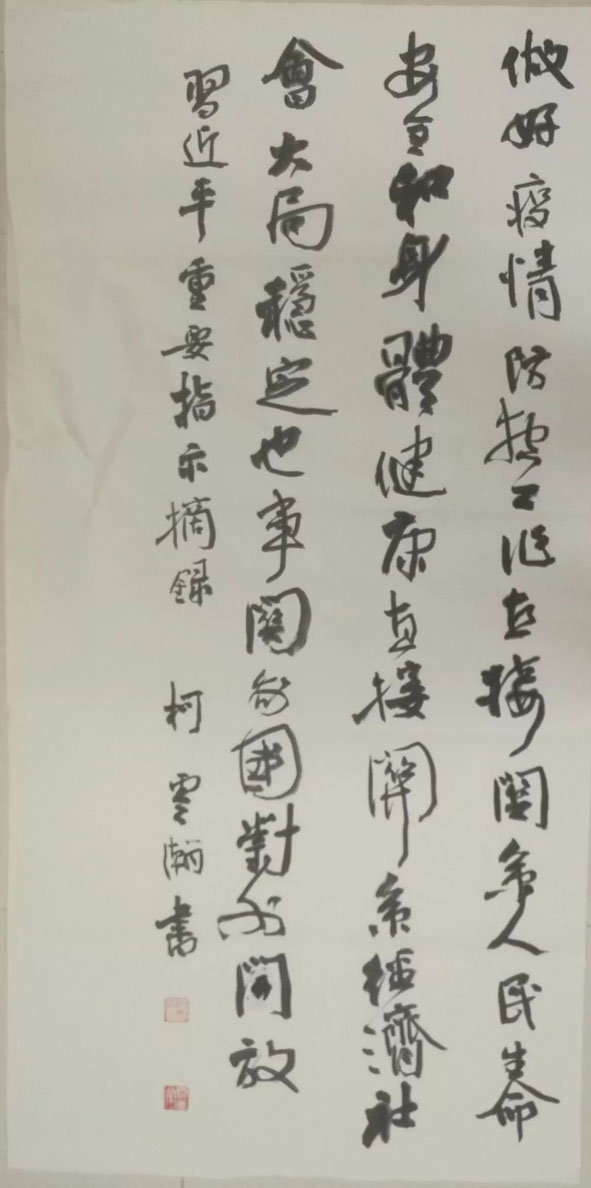 做好疫情防控工作直接關系人民生命
安全和身體健康直接關系經濟社
會大局穩定也事關我國對外開放
習近平重要指示摘録 柯雲瀚書